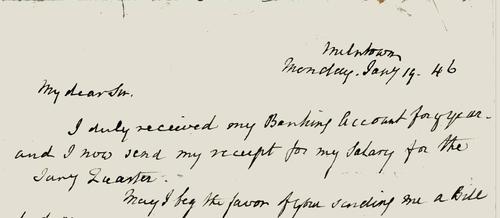 Milntown
Monday. Jany 19. 46
My dear Sir.
I duly received my Banking Account for year
and I now send my receipt for my Salary for the
Jany Quarter.
May I beg the favor of you sending me a Bill